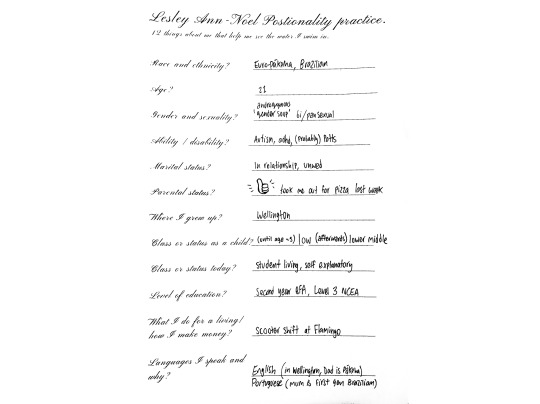 Lesley Ann-Noel Postionality practice.
12 things about me that help me see the water I swim in.
Race and ethnicity? Euro-pākeha, Brazilian
Age? 21
Gender and sexuality? androgynous 'gender soup' bi/pansexual
Ability / disability? Autism, adhd, (probably) Potts
Marital status? In relationship, unwed
Parental status? took me out for pizza last week
Where I grew up? Wellington
Class or status as a child? (until age ~5) low (afterwards) lower middle
Class or status today? Student living, self explanatory
Level of education? Second year BFA, Level 3 NCEA
What I do for a living/
how I make money? Scooter Shift at Flamingo
Languages I speak and
why? English (in Wellington, Dad is Pākeha)
Portuguese (mum is first gen Brazilian)